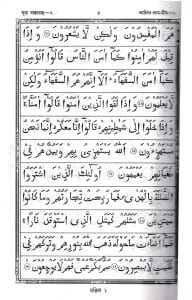 هُمُ الْمُفْسِدُوْنَ وَلٰكِنْ لَّا يَشْعُرُوْنَ ۝ وَاِذَا
قِيْلَ لَهُمْ اٰمِنُوْا كَمَاۤ اٰمَنَ النَّاسُ قَالُوْۤا اَنُؤْمِنُ
كَمَاۤ اٰمَنَ السُّفَهَآءُ ؕ اَلَاۤ اِنَّهُمْ هُمُ السُّفَهَآءُ وَلٰكِنْ
لَّا يَعْلَمُوْنَ ۝ وَاِذَا لَقُوا الَّذِيْنَ اٰمَنُوْا قَالُوْۤا اٰمَنَّا ۚ وَاِذَا
خَلَوْا اِلٰى شَيٰطِيْنِهِمْ ۙ قَالُوْۤا اِنَّا مَعَكُمْ ۙ اِنَّمَا نَحْنُ
مُسْتَهْزِءُوْنَ ۝ اَللّٰهُ يَسْتَهْزِئُ بِهِمْ وَيَمُدُّهُمْ فِيْ
طُغْيَانِهِمْ يَعْمَهُوْنَ ۝ اُولٰٓئِكَ الَّذِيْنَ اشْتَرَوُا
الضَّلٰلَةَ بِالْهُدٰى ۪ فَمَا رَبِحَتْ تِّجَارَتُهُمْ وَمَا كَانُوْا
مُهْتَدِيْنَ ۝ مَثَلُهُمْ كَمَثَلِ الَّذِى اسْتَوْقَدَ نَارًا ۚ
فَلَمَّاۤ اَضَآءَتْ مَا حَوْلَهٗ ذَهَبَ اللّٰهُ بِنُوْرِهِمْ وَتَرَكَهُمْ فِيْ
ظُلُمٰتٍ لَّا يُبْصِرُوْنَ ۝ صُمٌّۢ بُكْمٌ عُمْيٌ فَهُمْ لَا يَرْجِعُوْنَ ۝
মঞ্জিল ১